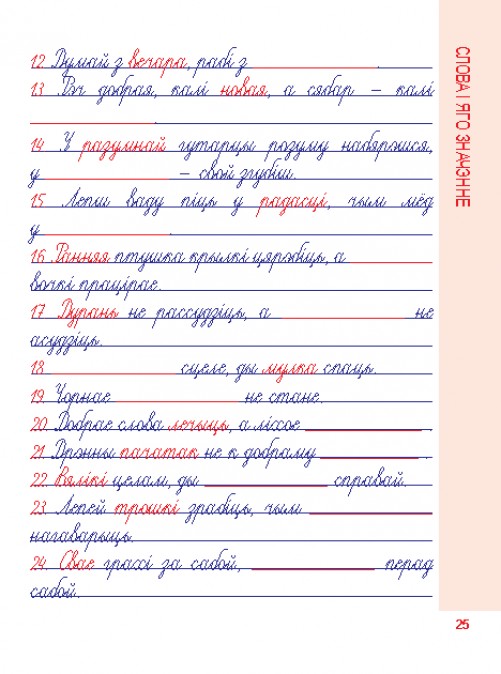 12. Думай з вечара, рабі з ____________.
13. Рэч добрая, калі новая, а сябар – калі
____________.
14. У разумнай гутарцы розуму набярэшся,
у ____________ – свой згубіш.
15. Лепш ваду піць у радасці, чым мёд
у ____________.
16. Ранняя птушка крылкі церабіць, а ____________
вочкі праціра­е.
17. Дурань не рассудзіць, а ____________ не
асудзіць.
18. ____________ сцеле, ды мулка спаць.
19. Чорнае ____________ не стане.
20. Добрае слова лечыць, а ліхое ____________.
21. Дрэнны пачатак не к добраму ____________.
22. Вялікі целам, ды ____________ справай.
23. Лепей трошкі зрабіць, чым ____________
нагаварыць.
24. Свае грахі за сабой, ____________ перад
сабой.
СЛОВА І ЯГО ЗНАЧЭННЕ
25